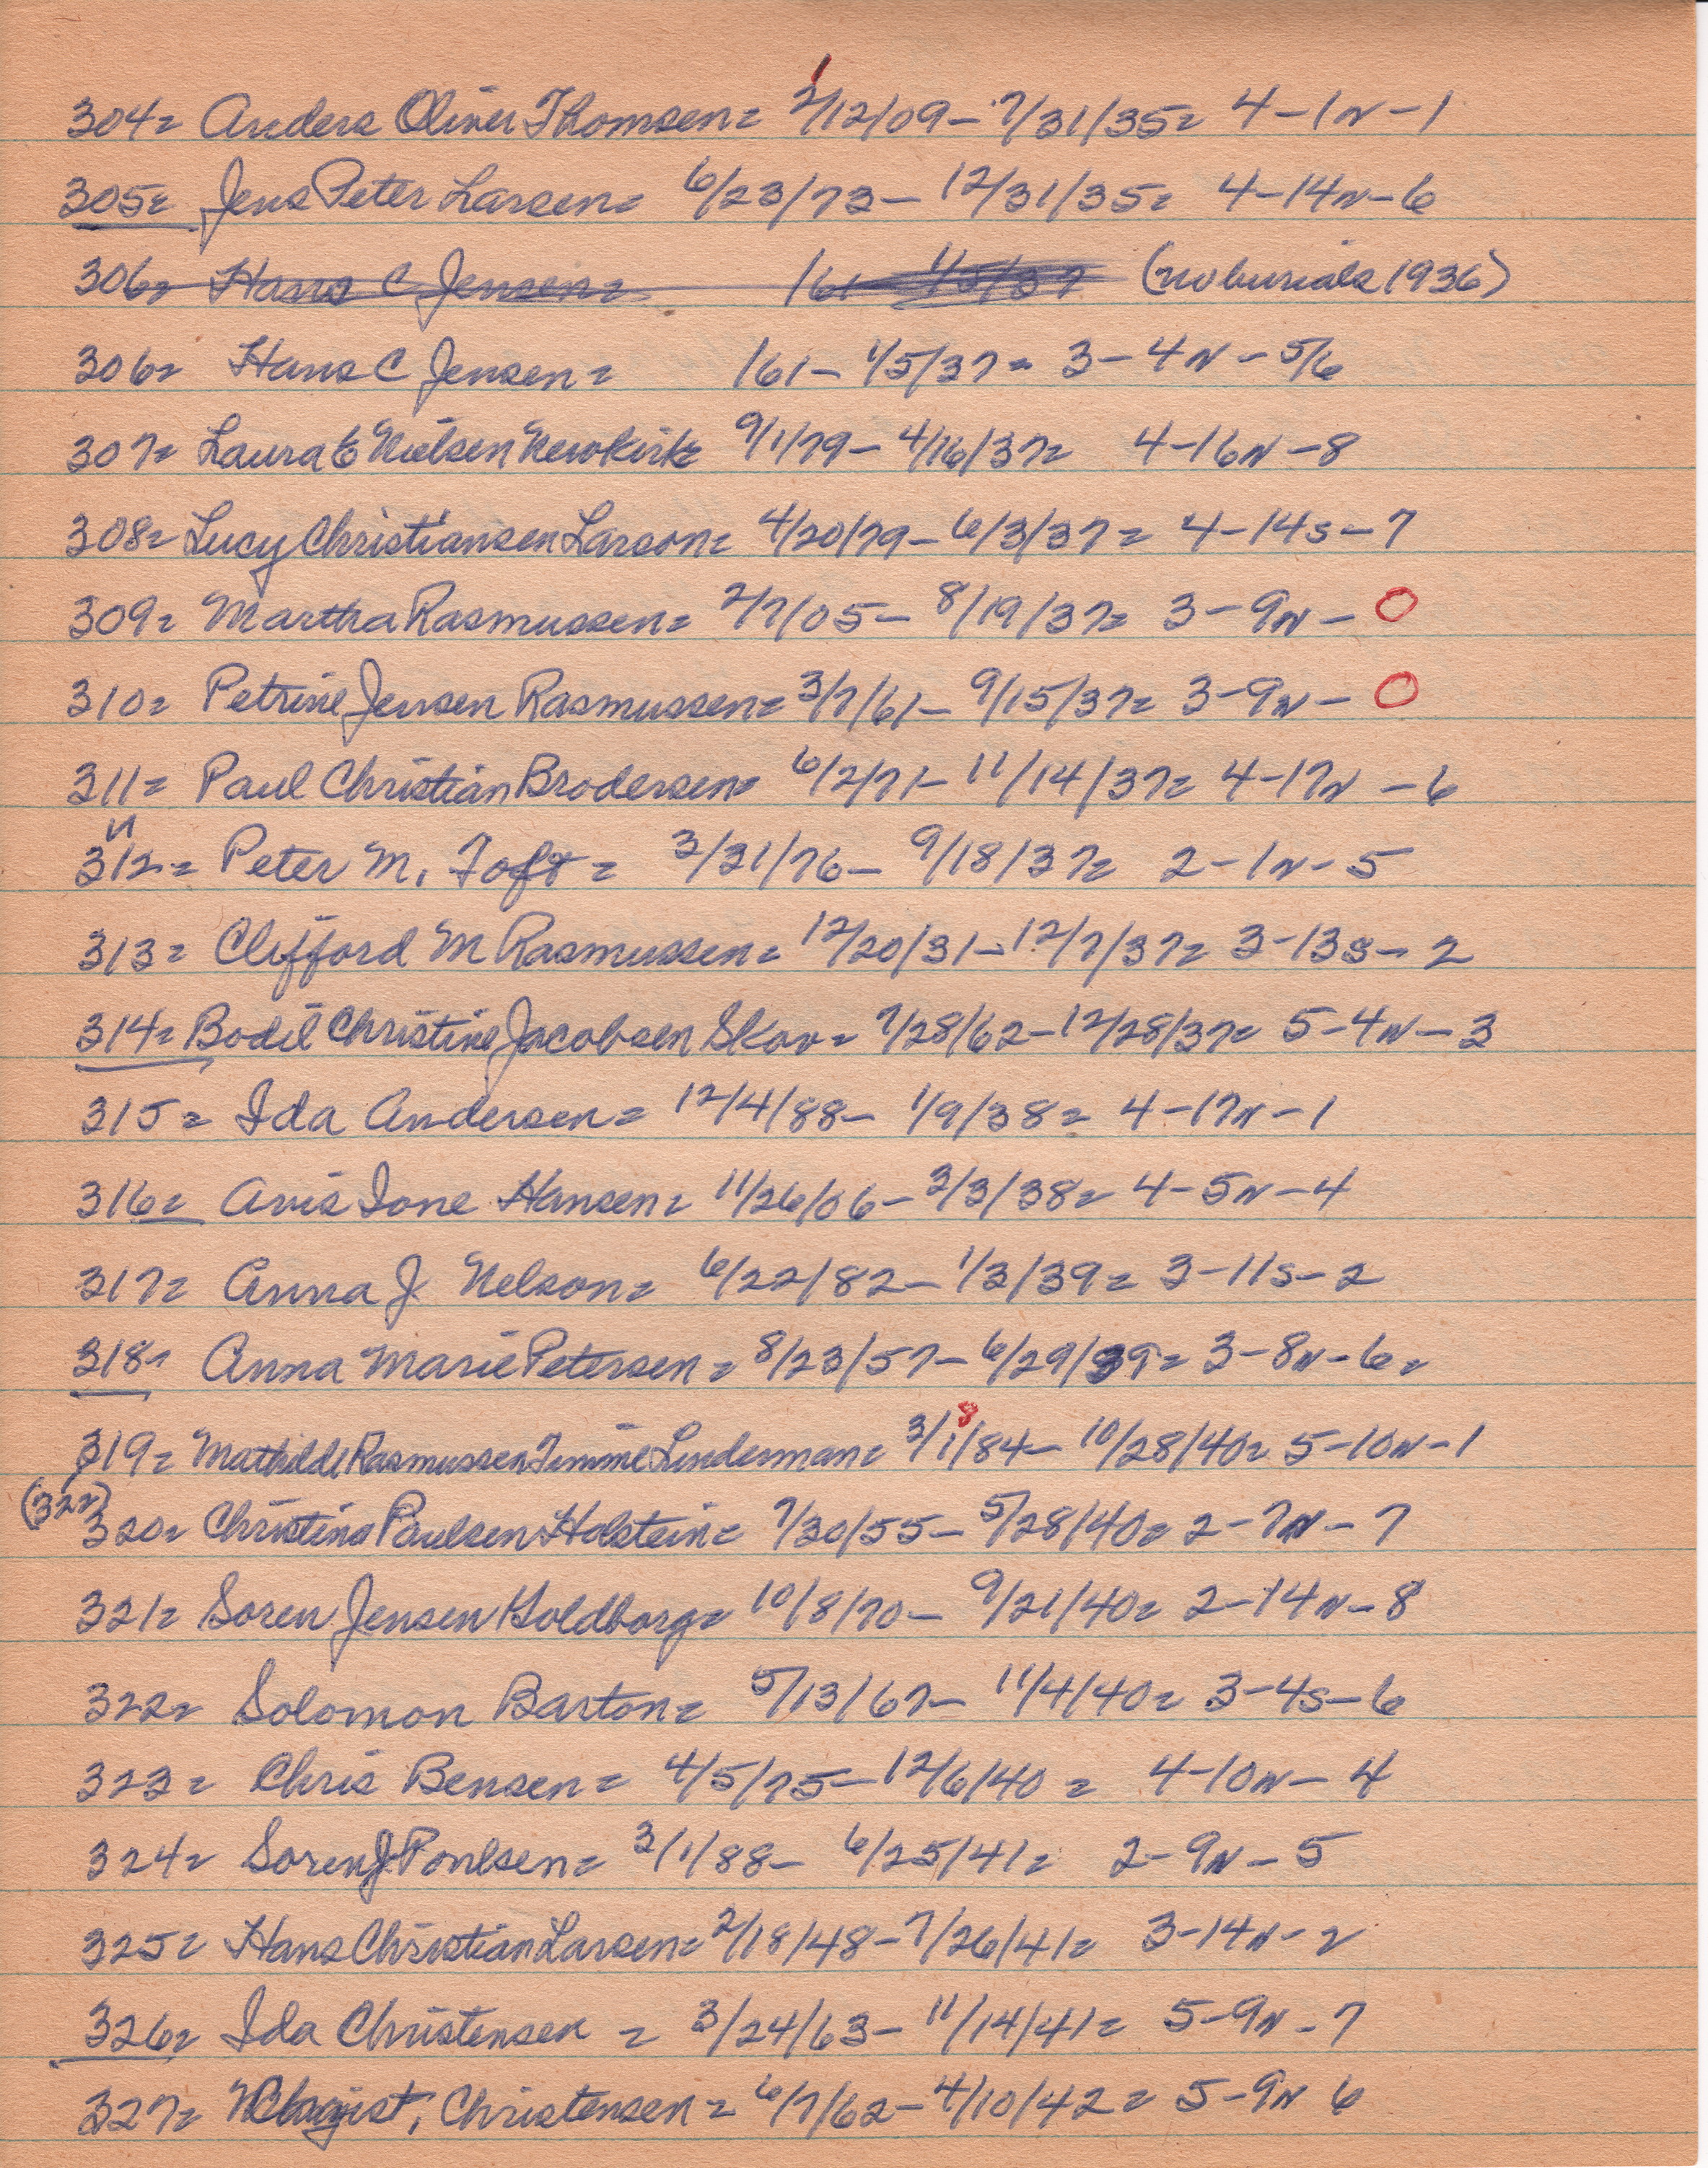 304= Anders Oliver Thomsen= 2/12/09- 7/31/35= 4-1N-1
305= Jens Peter Larsen= 6/23/73- 12/31/35= 4-14N-6
306= Hans C Jensen= 161 1/5/37 (no burials 1936)
306= Hans C Jensen= 161- 1/5/37= 3-4N-5/6
307= Laura E Nielsen Newkirk= 9/1/79- 4/16/37= 4-16N-8
308= Lucy Christiansen Larson= 4/20/79- 6/3/37= 4-14S-7
309= Martha Rasmussen= 2/7/05- 8/19/37= 3-9N- 0
310= Petrine Jensen Rasmussen= 3/7/61- 9/15/37= 3-9N- 0
311= Paul Christian Brodersen= 6/2/71- 11/14/37= 4-17N-6
312= Peter M. Toft= 3/31/76- 9/18/37= 2-1N-5
313= Clifford M Rasmussen= 12/20/31- 12/7/37= 3-13S-2
314= Bodil Christine Jacobsen Skov= 7/28/62- 12/28/37= 5-4N-3
315= Ida Andersen= 12/4/88- 1/9/38= 4-17N-1
316= Avis Ione Hansen= 11/26/06- 3/3/38= 4-5N-4
317= Anna J. Nelson= 6/22/82- 1/3/39= 3-11S-2
318= Anna Marie Petersen= 8/23/57- 6/29/39= 3-8N-6=
8
319= Mathilde Rasmussen Timme Linderman= 3/1/84- 10/28/40= 5-10N-1
(322)
320= Christina Paulsen Holstein= 7/30/55- 5/28/40= 2-7N-7
321= Soren Jensen Holdborg= 10/8/70- 9/21/40= 2-14N-8
322= Solomon Barton= 5/13/67- 11/4/40= 3-4S-6
323= Chris Bensen= 4/5/75- 12/6/40= 4-10N-4
324= Soren J Poulsen= 3/1/88- 6/25/41= 2-9N-5
325= Hans Christian Larsen= 2/18/48- 7/26/41= 3-14N-2
326= Ida Christensen= 3/24/63- 11/14/41= 5-9N-7
327= Christensen= 6/7/62- 4/10/42= 5-9N 6